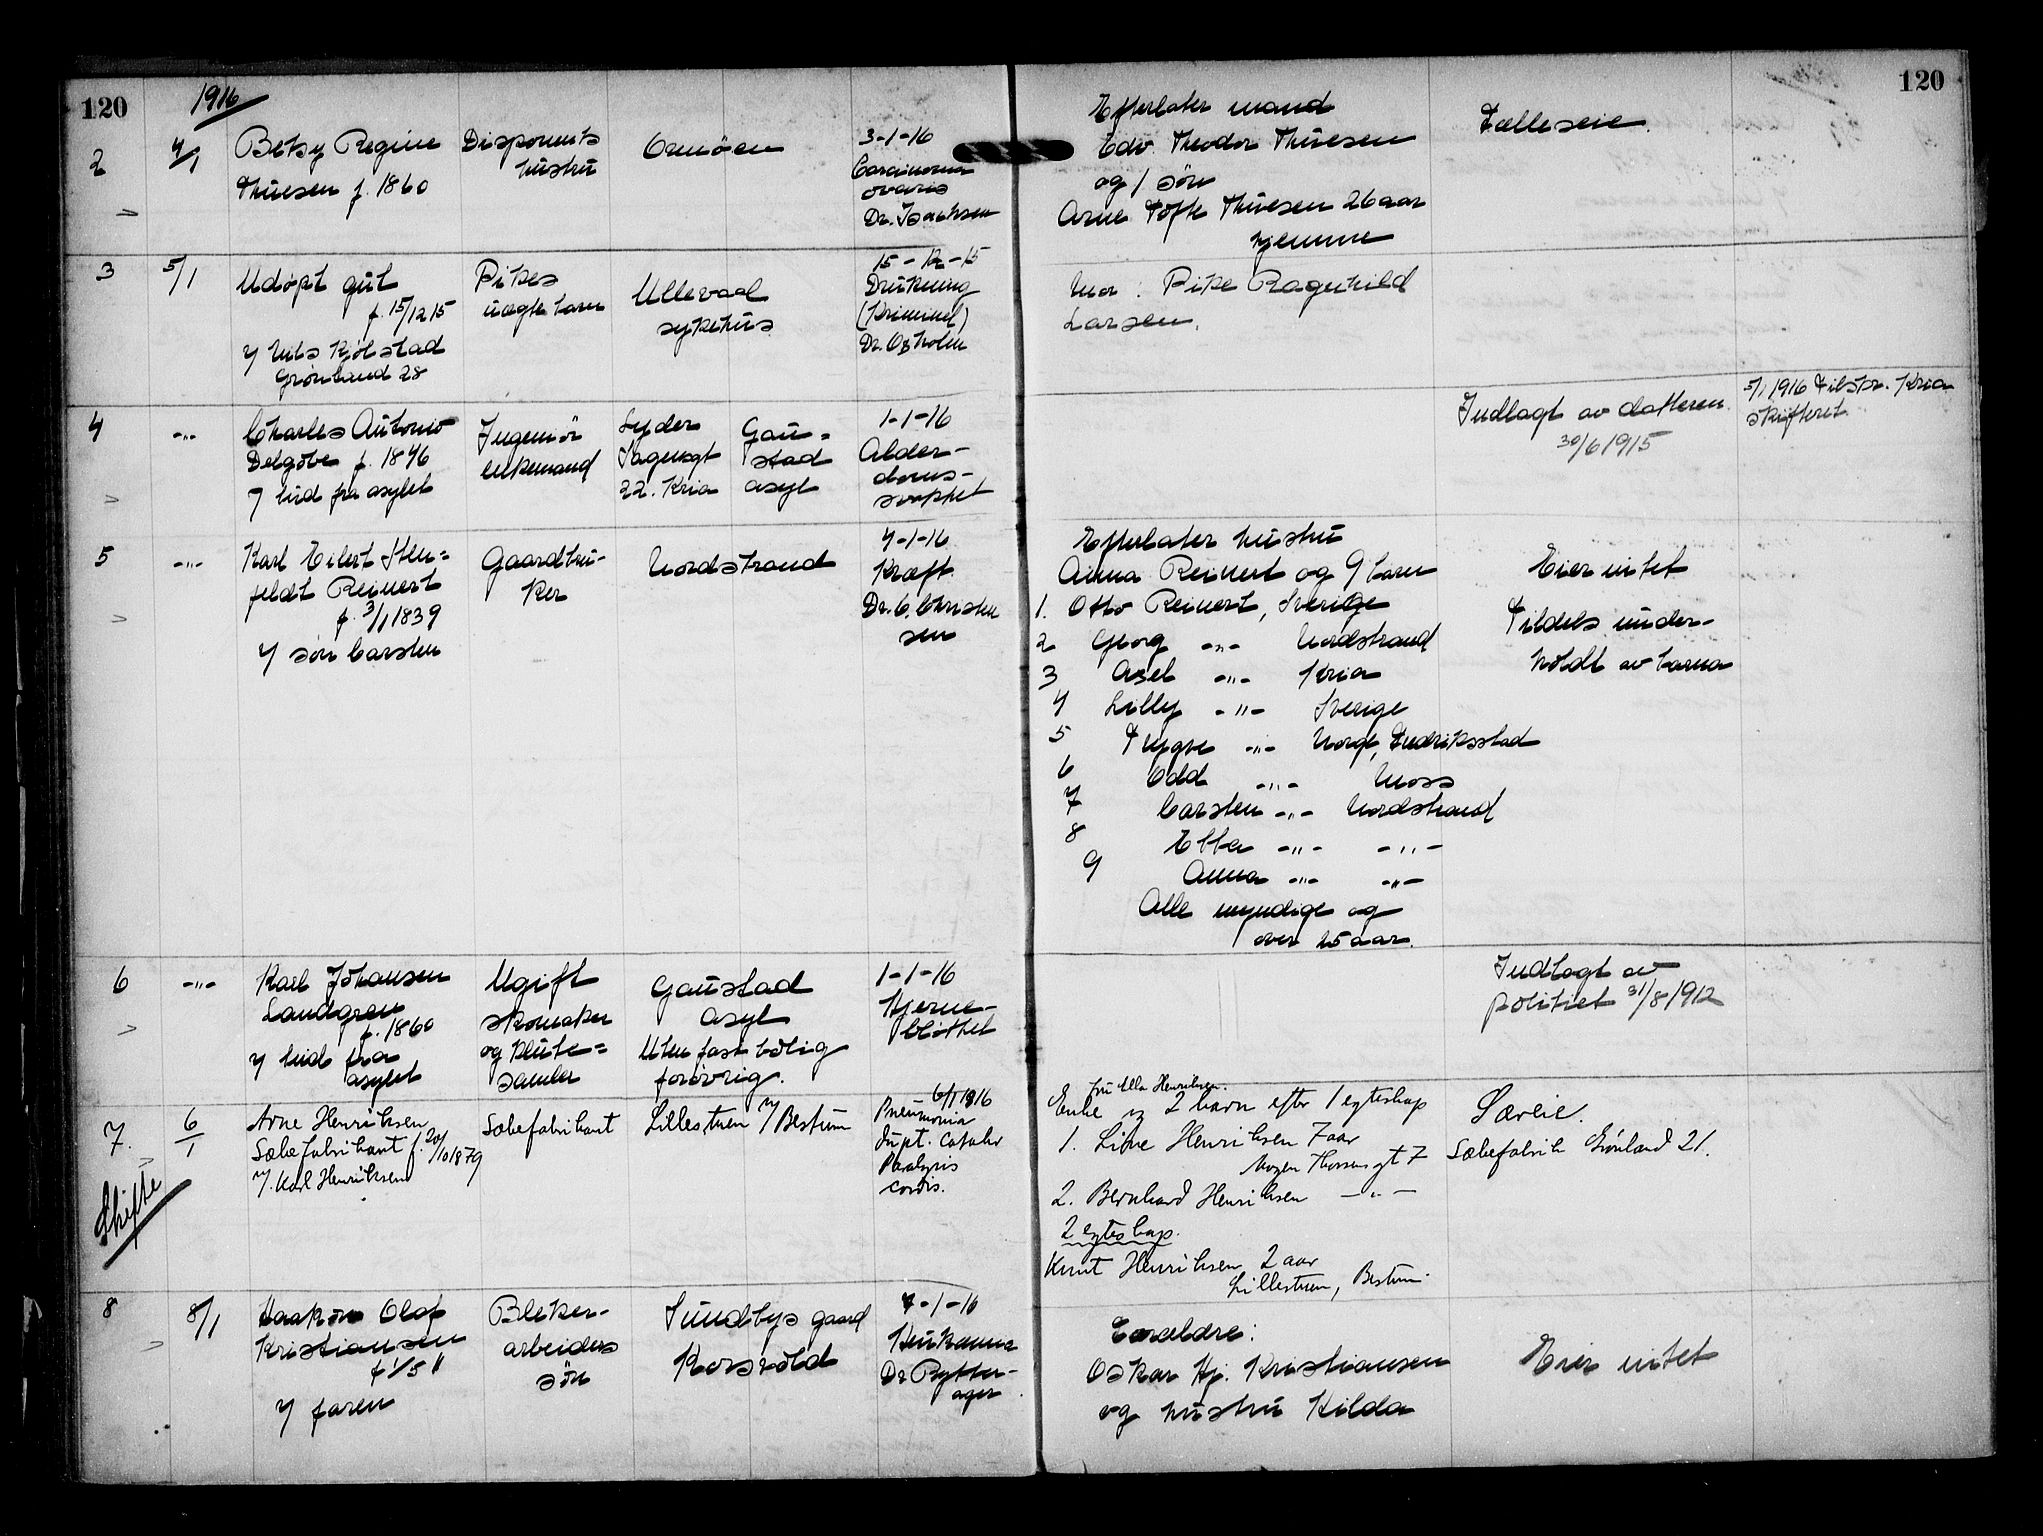 120
1916
120
2
4/1
Betzy Regine
Thuesen f. 1860
Disponents
hustru
Ormöen
3-1-16
Carcinoma
ovarie
Dr. Isachsen
Efterlater mand
Edv. Theodor Thuesen
og 1 sön
Arne Tofte Thuesen 26 aar
hjemme
Fælleseie.
3
5/1
Udöpt gut
f. 15/12 15
v/ Nils Kjölstad
Grönland 28
Pikes
uægte barn
Ullevaal
sykehus
15-12-15
Drukning
(Kriminel)
Mor: Pike Ragnhild
Larsen.
4
-"-
Charles Antonio
Delgobe f. 1846
v/ bud fra asylet
Ingeniör
enkemand
Lyder
Sagensgt
22. Kria
Gau=
stad
asyl
1-1-16
Alder-
doms-
svakhet
Indlagt av datteren
30/6 1915
5/1 1916 Tilskr. Kria
skifteret
5
-"-
Karl Eilert Hen=
feldt Reinert
f. 3/1 1839
v/ sön Carsten
Gaardbru-
ker
Nordstrand
4-1-16
Kræft
Dr. C. Christen
sen
Efterlater hustru
Anna Reinert og 9 barn
1. Otto Reinert, Sverige
2 Georg -"- Nordstrand
3 Axel -"- Kria
4 Lilly -"- Sverige
5 Trygve -"- Norge, Fredriksstad
6 Odd -"- Moss
7 Carsten -"- Nordstrand
8 Ebba -"- -"-
9 Anna -"- -"-
Alle myndige og
over 25 aar.
Eier intet
Tildels under-
holdt av barna
6
-"-
Karl Johansen
Landgren
f. 1860
v/ bud fra
asylet
Ugift
skomaker
og klute=
samler
Gaustad
asyl
Uten fast bolig
forövrig.
1-1-16
Hjerne-
blöthet
Indlagt av
politiet 31/8 1912
7.
6/1
Skifte
Arne Henriksen
Sæbefabrikant f. 20/10 1879
v/. Karl Henriksen
Sæbefabrikant
Lillestuen v/ Bestum
6/1 1916
Pneumonia
dupl. Catahr
Paralysis
cordis.
fru Ella Henriksen.
Enke og 2 barn efter 1 egteskap
1. Live Henriksen 7 aar
Mogen Thorsens gt 7
2. Bernhard Henriksen -"-
2 egteskap.
Knut Henriksen 2 aar
Lillestuen, Bestum.
Særeie.
Sæbefabrik Grönland 21.
8
8/1
Haakon Olaf
Kristiansen
f 1/5 11
v/ faren
Bleker-
arbeiders
sön
Sundbys gaard
Korsvold
7-1-16
Dr Rytter-
ager
Forældre:
Oskar Hj. Kristiansen
og hustru Hilda
Eier intet